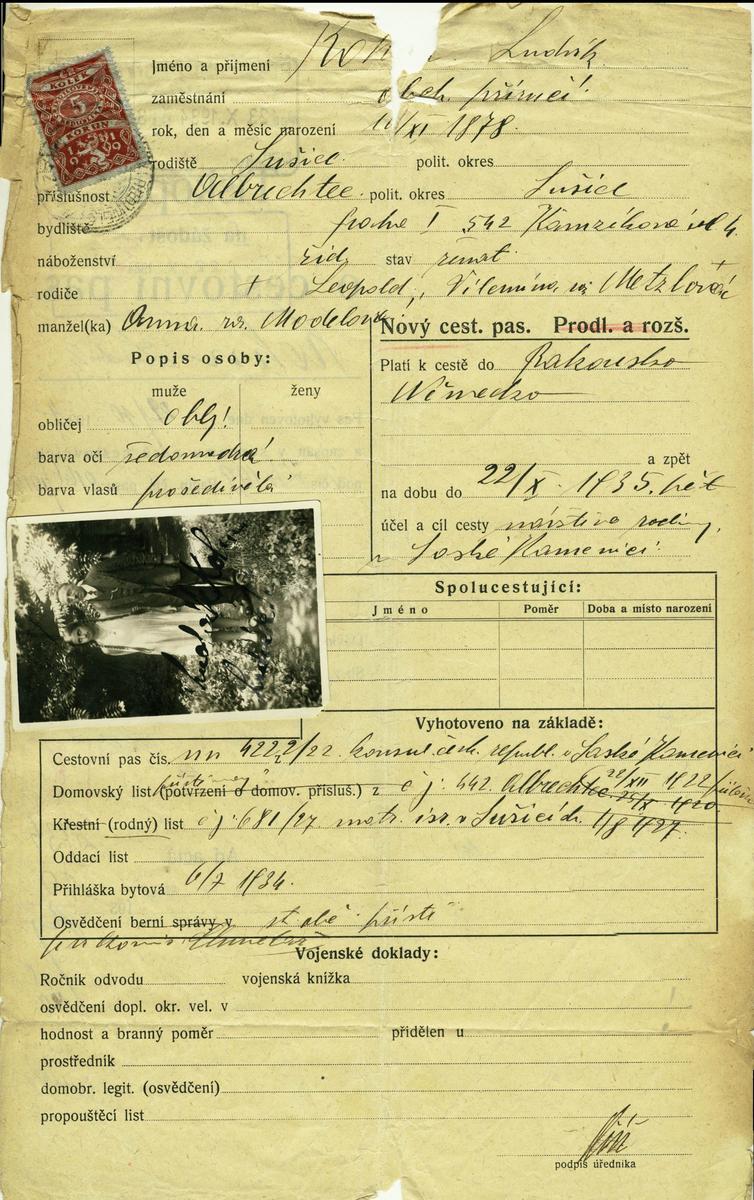 KOLEK
5
KORUN
1919
Jméno a příjmení Ludvík
zaměstnání obch. příručí
rok, den a měsíc narození 11/XI 1878.
rodiště Sušice. polit. okres
příslušnost Albrechtce polit. okres Sušice
bydliště Praha I 542 Kamzíková ul 4
náboženství žid. stav ženat
rodiče + Leopold, Vilemína roz Metzlová +
manžel(ka) Anna. roz. Modelová
Nový cest. pas. Prodl. a rozš.
Popis osoby:
Platí k cestě do Rakousko
Německo
muže ženy
obličej obl!
barva očí šedomodrá
barva vlasů prošedivělá
a zpět
na dobu do 22/X 1935. pět
účel a cíl cesty návštěva rodiny
v Saské Kamenici.
Spolucestující:
Jméno Poměr Doba a místo narození
Vyhotoveno na základě:
Cestovní pas čís. 4222/22. konsul. česk. republ. v Saské Kamenici
Domovský list (potvrzení o domov. přísluš.) z čj: 442. Albrechtce 22/XII 1922
Křestní (rodný) list čj: 681/27 matr. isr. v Sušicích. 1/8 1927.
Oddací list
Přihláška bytová 6/7 1934.
Osvědčení berní správy v
Vojenské doklady:
Ročník odvodu vojenská knížka
osvědčení dopl. okr. vel. v
hodnost a branný poměr přidělen u
prostředník
domobr. legit. (osvědčení)
propouštěcí list
podpis úředníka